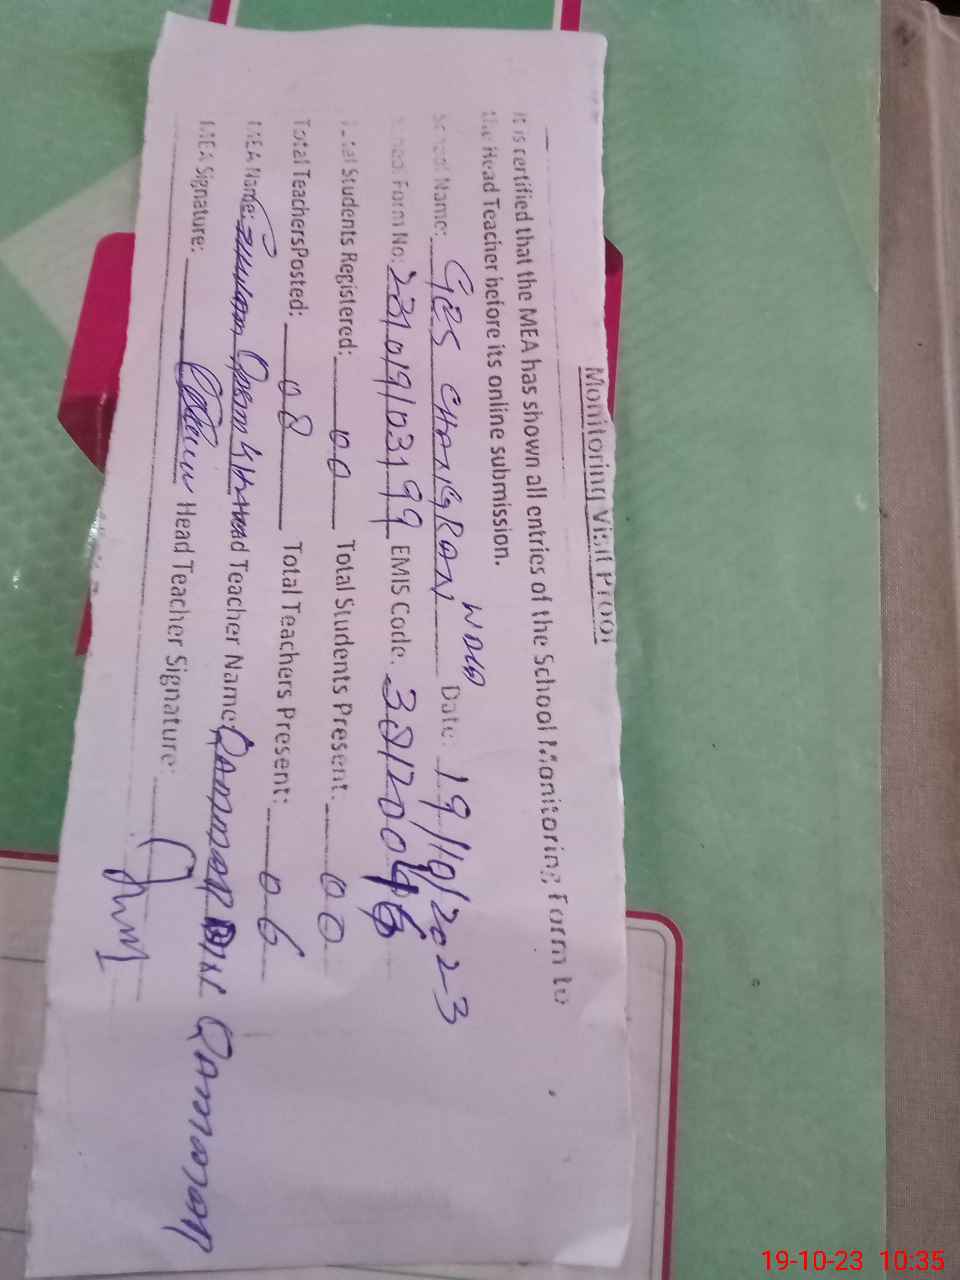 Monitoring Visit Proof
It is certified that the MEA has shown all entries of the School Monitoring Form to
the Head Teacher before its online submission.
School Name: GES CHAIGRAN Date: 19/10/2023
School Form No: EMIS Code: 38120046
Total Students Registered: 00 Total Students Present: 00
Total Teachers Posted: 08 Total Teachers Present: 06
MEA Name: Head Teacher Name: Qammar Qammar
MEA Signature: Head Teacher Signature:
19-10-23 10:35